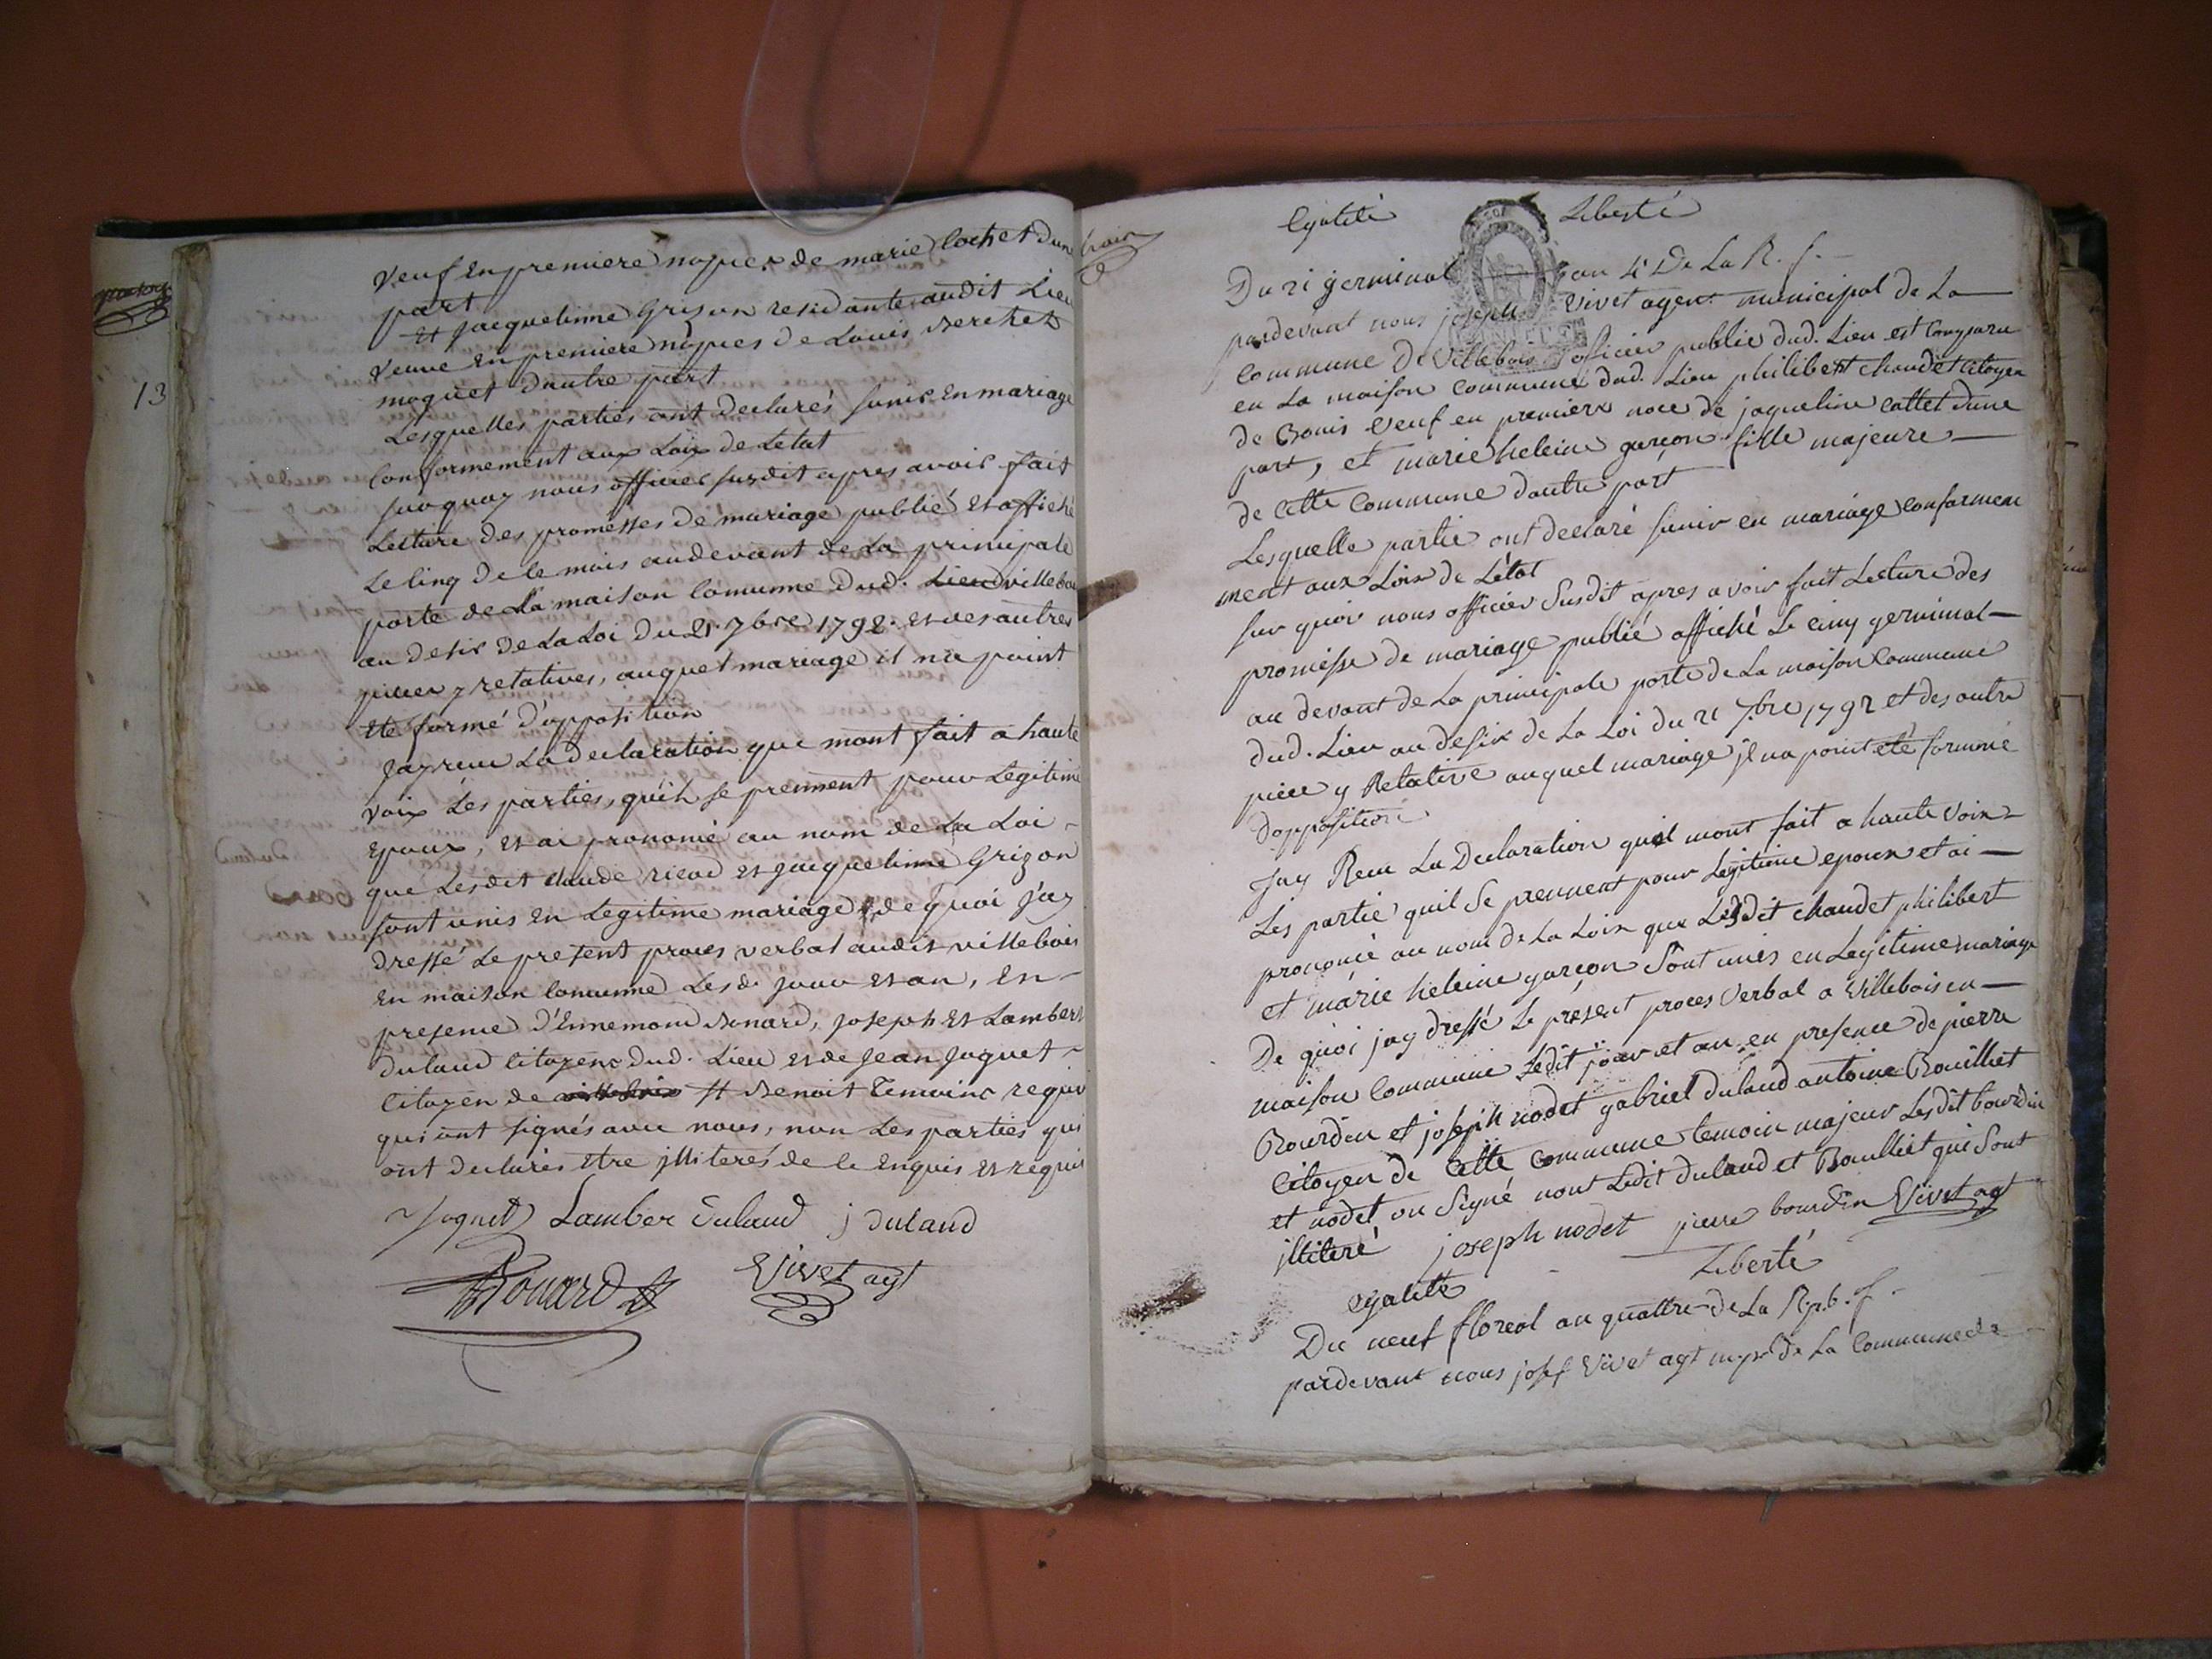 13
veuf En premiere nopces de marie Cochet dun
part
Et jacquelinne Grison residante audit Lieu
veuve en premiere nopces de Louis Berchet
moquet dautre part
Lesquelles parties ont declarés sunir En mariage
Conformement aux Loix de Letat
surquoy nous officier susdit apres avoir fait
Lecture des promesses de mariage publié et affiché
Le Cinq de Ce mois audevant de La principale
porte de La maison Comunne dud. Lieu villeboi
au desir de La Loi du 21. 7bre 1792. et des autres
pieces y relatives, auquel mariage il na point
Eté formé d'opposition
Jay recu La declaration que mont fait a haute
voix Les parties, quils se prennent pour Legitime
Epoux, et ai prononcé au nom de La Loi
que Lesdit Claude ricod et jacquelinne Grizon
sont unis En Legitime mariage, de quoi Jay
dressé Le present proces verbal audit villebois
En maison Comunne Lesd. jour et an, En
presence d'Ennemond Bonard, joseph et Lambert
dulaud Citoyens dud. Lieu et de jean joguet
Citoyen de St Benoit Temoins requis
qui ont signés avec nous, non Les parties qui
ont declarés Etre jlliterés de Ce Enquis et requis
Joguet Lamber Dulaud j dulaud
Bonard Vivet agt
Egalité Liberté
Du 21 germinal an 4e De La R. f.
pardevant nous joseph Vivet agent municipal de La
Commune De Villebois officier public dud. Lieu est Comparu
en La maison Commune dud. Lieu philibert chaudet Citoyen
de Bouis Veuf en premiere noce de jaqueline Cattet dune
part, et marie heleine garçon fille majeure
de Cette Commune dautre part
Lesquelle partie ont declaré sunir en mariage Conformem
ment aux Loix de Létat
sur quoi nous officier Susdit apres avoir fait Lecture des
promesse de mariage publié affiché Le cinq germinal
au devant de La principale porte de La maison Commune
dud. Lieu au desir de La Loi du 21 7bre 1792 et des autre
piece y Relative auquel mariage jl na point eté formmé
dopposition
Jay Recu La Declaration quil mont fait a haute Voix
Les partie quil Se prennent pour Légitime epoux et ai
prononcé au nom de La Loix que Lesdit chaudet philibert
et marie heleine garçon Sont unis en Legitime mariage
De quoi jay dressé Le present proces Verbal a Villebois en
maison Commune Ledit jour et an en presence de pierre
Bourdin et joseph nodet gabriel dulaud antoine Bouilliet
Citoyen de Cette Commune temoin majeur Lesdit bourdin
et nodet on Signé nont Ledit dulaud et Boulliet qui Sont
jlliteré joseph nodet piere bourdin Vivet agt
egalité Liberté
Du neuf floreal an quattre de La Rpb. f.
pardevant nous josef Vivet agt mpl de La Commune de